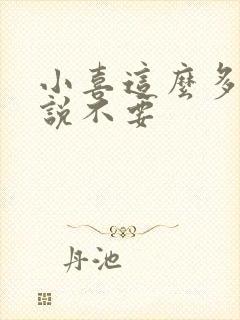 小喜這麼多
說不要
丹池